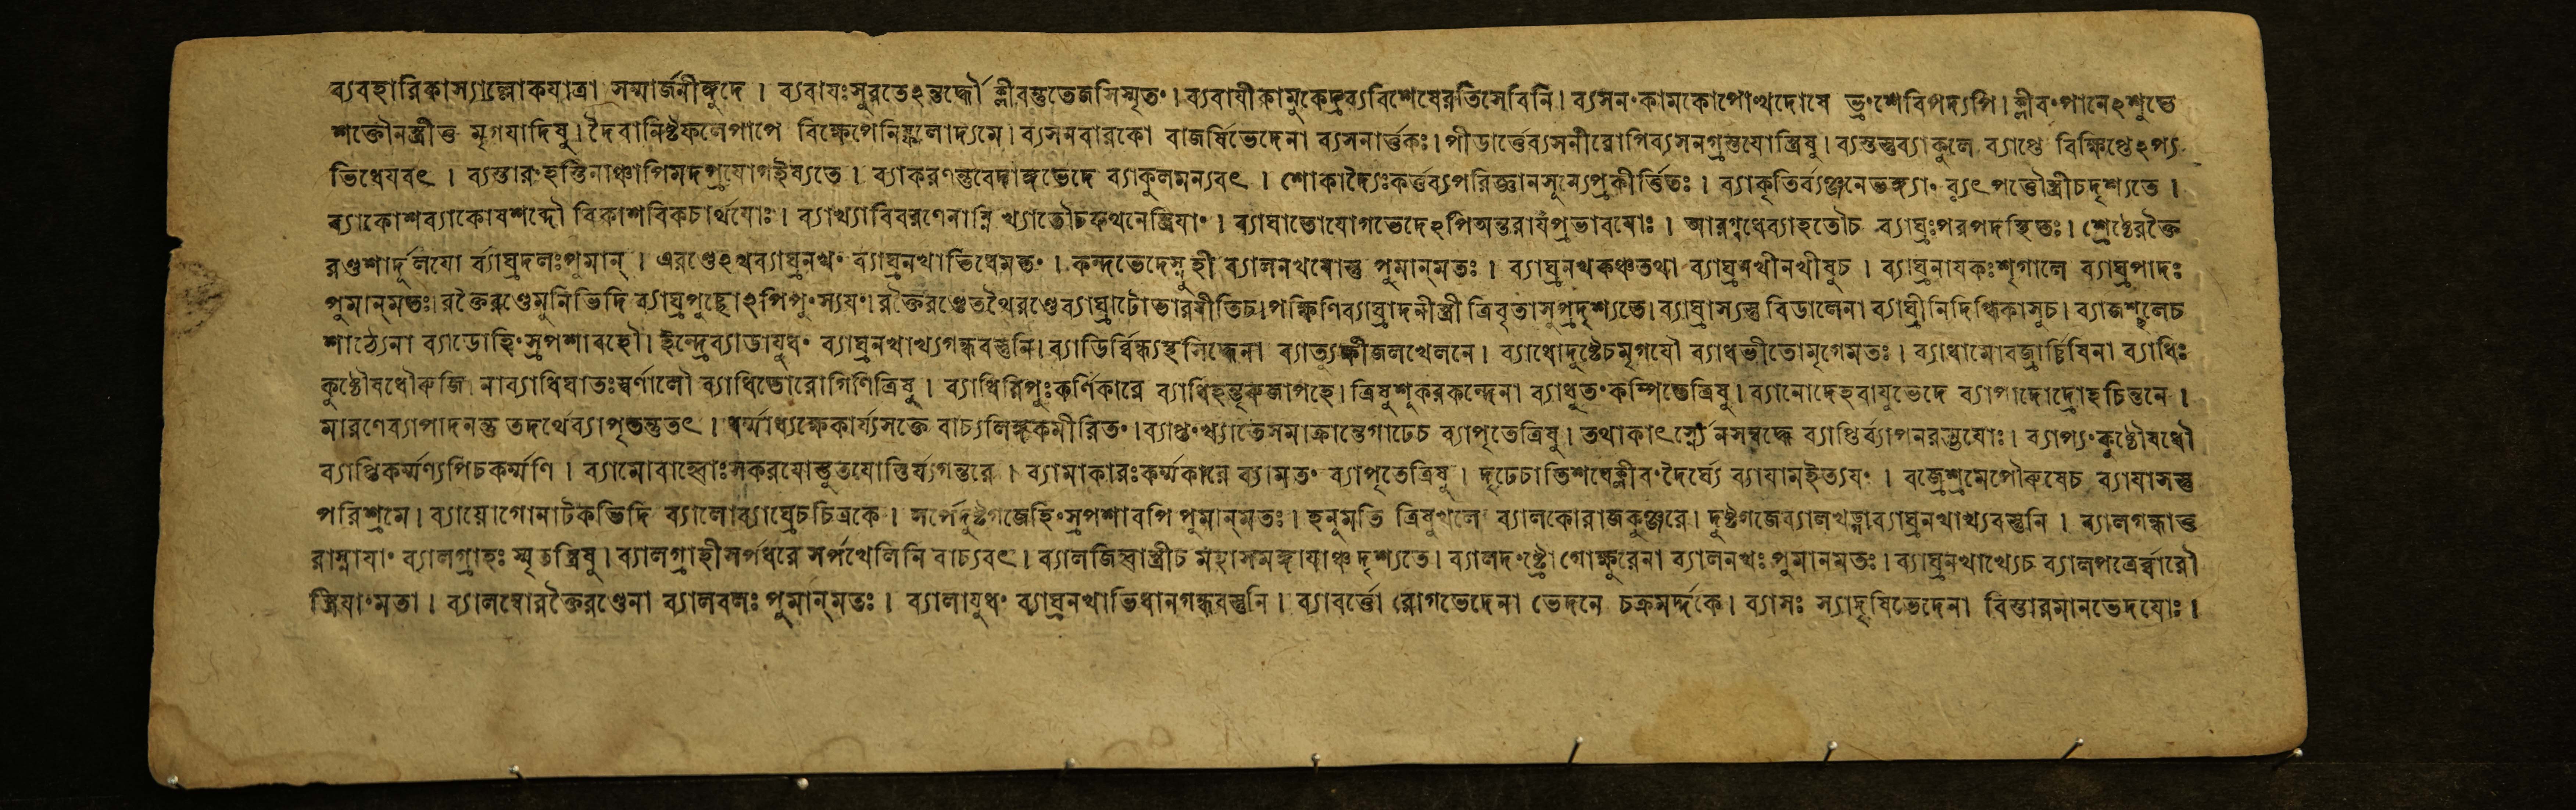 ব্যবহারিকাস্যাল্লোকযাত্রা সম্মার্জনীঙ্গুদে । ব্যবাযঃসুরতেঽন্তর্দ্ধৌ ক্লীবন্তুতেজসিস্মৃতং। ব্যবাযীকামুকেদ্রব্যবিশেষেরতিসেবিনি। ব্যসনংকামকোপোত্থদোষে ভ্রংশেবিপদ্যপি। ক্লীবংপানেঽশুভে
শক্তৌনস্ত্রীত্তু মৃগযাদিষু। দৈবানিষ্টফলেপাপে বিক্ষেপেনিষ্ফলোদ্যমে। ব্যসনবারকো বাজর্ষিভেদেনা ব্যসনার্ত্তকঃ। পীডার্ত্তেব্যসনীরোগিব্যসনগ্রস্তযোস্ত্রিষু। ব্যস্তন্তুব্যাকুলে ব্যাপ্তে বিক্ষিপ্তেঽপ্য
ভিধেযবৎ । ব্যস্তারংহস্তিনাঞ্চাপিমদপ্রযোগইষ্যতে । ব্যাকরণন্তুবেদাঙ্গভেদে ব্যাকুলমন্যবৎ । শোকাদ্যৈঃকর্ত্তব্যপরিজ্ঞানসুন্যেপ্রকীর্ত্তিতঃ । ব্যাকৃতির্ব্যঞ্জনেভঙ্গ্যাং ব্যুৎপত্তৌস্ত্রীচদৃশ্যতে ।
ব্যাকোশব্যাকোষশব্দৌ বিকাশবিকচার্থযোঃ। ব্যাখ্যাবিবরণেনাম্নি খ্যাতৌচকথনেস্ত্রিযাং । ব্যাঘাতোযোগভেদেঽপিঅন্তরাযপ্রভাবযোঃ । আরগ্বধেব্যাহতৌচ ব্যাঘ্রঃপরপদস্থিতঃ। শ্রেষ্ঠেরক্তৈ
রণ্ডশার্দূলযো র্ব্যাঘ্রদলঃপুমান্ । এরণ্ডেঽথব্যাঘ্রনখং ব্যাঘ্রনখাভিধেমতং । কন্দভেদেস্নুহী ব্যালনখযোস্তু পুমান্মতঃ । ব্যাঘ্রনখকঞ্চতথা ব্যাঘ্রনখীনখীষুচ । ব্যাঘ্রনাযকঃশৃগালে ব্যাঘ্রপাদঃ
পুমান্মতঃ। রক্তৈরণ্ডেমুনিভিদি ব্যাঘ্রপুচ্ছোঽপিপুংস্যযং। রক্তৈরণ্ডেতথৈরণ্ডেব্যাঘ্রাটোভারবীতিচ। পক্ষিণিব্যাঘ্রাদনীস্ত্রী ত্রিবৃতাসুপ্রদৃশ্যতে। ব্যাঘ্রাস্যস্তু বিডালেনা ব্যাঘ্রীনিদিগ্ধিকাসুচ। ব্যাজশ্ছলেচ
শাঠ্যেনা ব্যাডোহিংস্রপশাবহৌ। ইন্দ্রেব্যাডাযুধং ব্যাঘ্রনখাখ্যগন্ধবস্তুনি। ব্যাডির্বিন্ধ্যস্থনিদ্ধেনা ব্যাত্যুক্ষীজলখেলনে । ব্যাধোদুষ্টেচমৃগযৌ ব্যাধভীতোমৃগেমতঃ । ব্যাধামোবজ্রার্চ্চিষিনা ব্যাধিঃ
কুষ্ঠৌষধৌরুজি নাব্যাধিঘাতঃস্বর্ণালৌ ব্যাধিতোরোগিণিত্রিষু । ব্যাধিরিপুঃকর্ণিকারে ব্যাধিহন্তৃরুজাপহে। ত্রিষুশুকরকন্দেনা ব্যাধুতংকম্পিতেত্রিষু। ব্যানোদেহবাযুভেদে ব্যাপাদোদ্রোহচিন্তনে ।
মারণেব্যাপাদনন্তু তদর্থেব্যাপৃতন্তুতৎ । ধর্ম্মাধ্যক্ষেকার্য্যসক্তে বাচ্যলিঙ্গকমীরিতং। ব্যাপ্তংখ্যাতেসমাক্রান্তেগাঢেচ ব্যাপৃতেত্রিষু। তথাকাৎর্স্ন্যেনসম্বদ্ধে ব্যাপ্তির্ব্যাপনরম্ভযোঃ। ব্যাপ্যংকুষ্ঠৌষধৌ
ব্যাপ্তিকর্ম্মণ্যপিচকর্ম্মণি । ব্যামোবাহ্বোঃসকরযোস্তুতযোস্তির্য্যগন্তরে । ব্যামাকারঃকর্ম্মকারে ব্যামতং ব্যাপৃতেত্রিষু। দৃঢেচাতিশযেক্লীবং দৈর্ঘ্যে ব্যাযামইত্যযং । বজ্রেশ্রমেপৌরুষেচ ব্যাযামস্তু
পরিশ্রমে। ব্যায়োগোনাটকভিদি ব্যালোব্যাঘ্রেচচিত্রকে । সর্পেদুষ্টগজেহিংস্রপশাবপি পুমান্মতঃ। হনুমতি ত্রিষুখলে ব্যালকোরাজকুঞ্জরে। দুষ্টগজেব্যালখড্গব্যাঘ্রনখাখ্যবস্তুনি । ব্যালগন্ধাত্তু
রাস্নাযাং ব্যালগ্রাহঃ স্মৃতস্ত্রিষু। ব্যালগ্রাহীসর্পধরে সর্পখেলিনি বাচ্যবৎ। ব্যালজিহ্বাস্ত্রীচ মহাসমঙ্গাযাঞ্চ দৃশ্যতে। ব্যালদংষ্ট্রো গোক্ষুরেনা ব্যালনখঃ পুমানমতঃ। ব্যাঘ্রনখাখ্যেচ ব্যালপত্রের্ব্বারৌ
স্ত্রিযাংমতা। ব্যালম্বোরক্তৈরণ্ডেনা ব্যালবলঃ পুমান্মতঃ । ব্যালাযুধং ব্যাঘ্রনখাভিধানগন্ধবস্তুনি । ব্যাবর্ত্তো রোগভেদেনা ভেদনে চক্রমর্দ্দকে। ব্যাসঃ স্যাদৃষিভেদেনা বিস্তারমানভেদযোঃ।